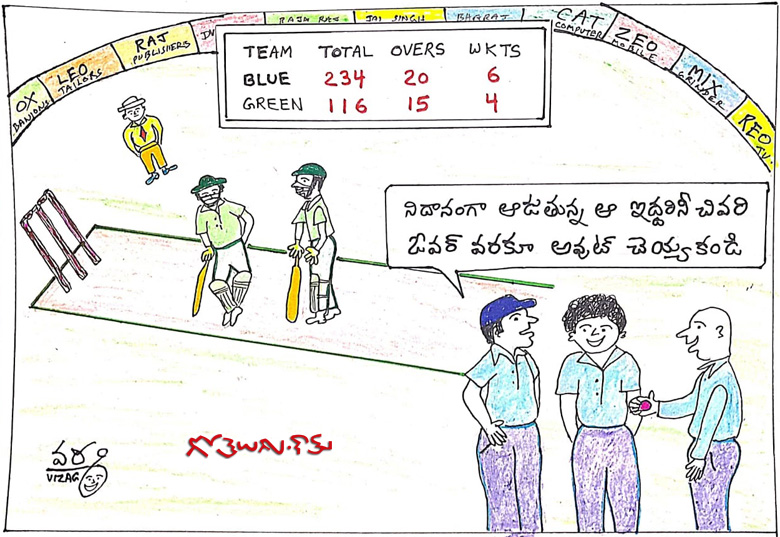 OX
BANIONS
LEO
TAILORS
RAJ
PUBLISHERS
RAJA RAJ
JAI SINGH
BAGRAJ
CAT
COMPUTER
ZEO
MOBILE
MIX
GRINDER
REO
TV.
TEAM TOTAL OVERS WKTS
BLUE 234 20 6
GREEN 116 15 4
నిదానంగా ఆడుతున్న ఆ ఇద్దరినీ చివరి
ఓవర్ వరకూ అవుట్ చెయ్యకండి
గోతెలుగు.కామ్
వర
VIZAG